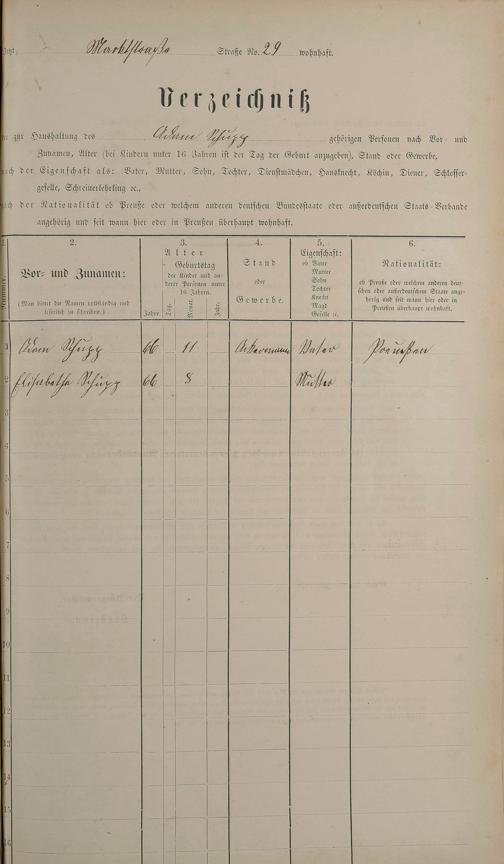 Marktstraße Straße No. 29 wohnhaft.
Verzeichniß
zur Haushaltung des Adam Schupp gehörigen Personen nach Vor- und
Zunamen, Alter (bei Kindern unter 16 Jahren ist der Tag der Geburt anzugeben), Stand oder Gewerbe,
nach der Eigenschaft als: Vater, Mutter, Sohn, Tochter, Dienstmädchen, Hausknecht, Köchin, Diener, Schlosser-
geselle, Schreinerlehrling ec.,
nach der Nationalität ob Preuße oder welchem anderen deutschen Bundesstaate oder außerdeutschen Staats-Verbande
angehörig und seit wann hier oder in Preußen überhaupt wohnhaft.
1. 2. 3. 4. 5. 6.
Nummer.
Vor- und Zunamen:
(Man bittet die Namen vollständig und
leserlich zu schreiben.)
Alter
Geburtstag
der Kinder und an-
derer Personen unter
16 Jahren.
Jahre. Tag. Monat. Jahr.
Stand
oder
Gewerbe.
Eigenschaft:
ob Vater
Mutter
Sohn
Tochter
Knecht
Magd
Geselle ec.
Nationalität:
ob Preuße oder welchem anderen deut-
schen oder außerdeutschen Staate ange-
hörig und seit wann hier oder in
Preußen überhaupt wohnhaft.
1 Adam Schupp 66 11 Ackersmann Vater Preußen
2 Elisabetha Schupp 66 8 Mutter
3
4
5
6
7
8
9
10
11
12
13
14
15
16